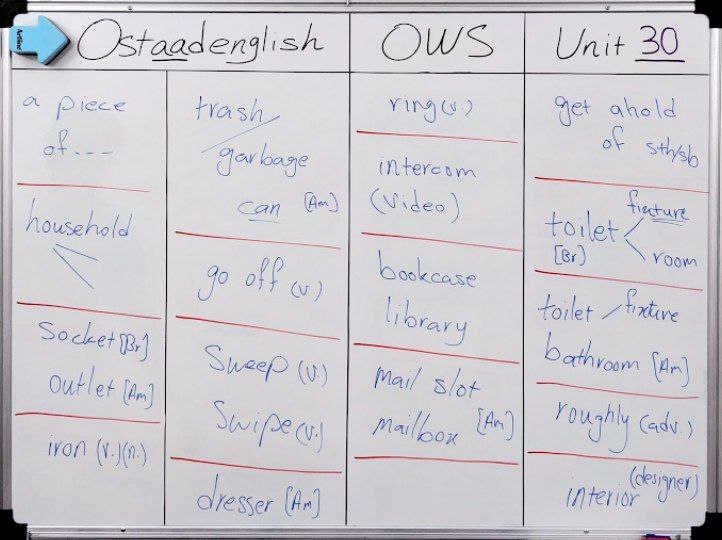 Ostaadenglish
OWS
Unit 30
a piece
of ---
household
Socket [Br]
Outlet [Am]
iron (v.)(n.)
trash /
garbage
can [Am]
go off (v)
Sweep (v.)
Swipe (v.)
dresser [Am]
ring (v.)
intercom
(Video)
bookcase
library
mail slot
mailbox [Am]
get ahold
of sth/sb
fixture
toilet
[Br] room
toilet / fixture
bathroom [Am]
roughly (adv.)
(designer)
interior